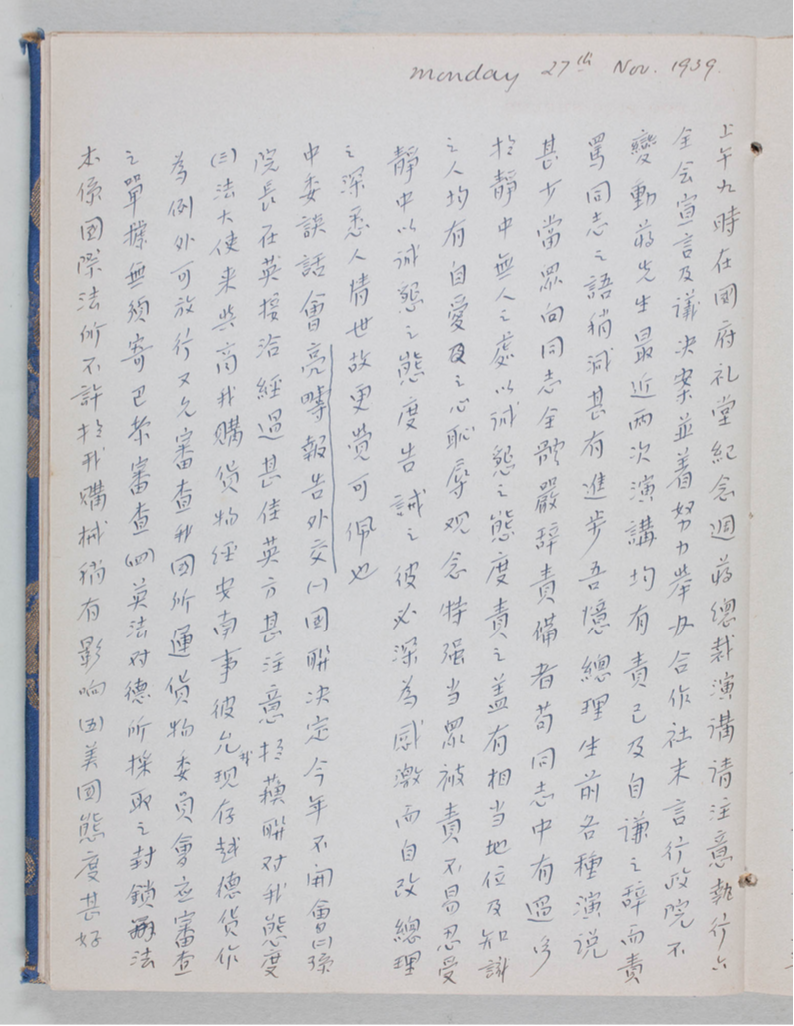 monday 27th Nov. 1939.
上午九時在國府礼堂紀念週蔣總裁演講请注意執行六
全会宣言及議决案並着努力举办合作社末言行政院不
變動蔣先生最近兩次演講均有責己及自谦之辞而責
罵同志之語稍减甚有進步吾憶總理生前各種演说
甚少當眾向同志全體嚴辞責備者苟同志中有過必
於靜中無人之處以诚懇之態度責之盖有相当地位及知識
之人均有自愛之心恥辱观念特强当眾被責不易忍受
靜中以诚懇之態度告誡之彼必深為感激而自改總理
之深悉人情世故更覺可佩也
中委談話會亮疇報告外交(一)国聯决定今年不開會(二)孫
院長在英接洽經過甚佳英方甚注意於蘇聯对我態度
(三)法大使来与商我購貨物经安南事彼允我现存越德货作
為例外可放行又允審查我國所運貨物委員會应審查
之單據無須寄巴黎審查(四)英法对德所採取之封鎖办法
本係國際法所不許於我購械稍有影响(五)美国態度甚好